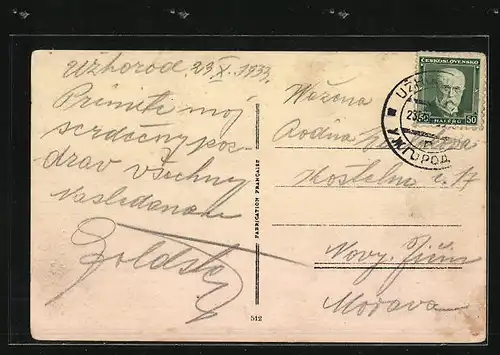 Užhorod, 23 X. 1933.
Primite moj
serdečny poz-
drav všechny
FABRICATION FRANÇAISE
512
ČESKOSLOVENSKO
50 HALÉŘŮ 50
UŽH
23.
УЖГОРОД
Važena
Rodina
Koštelna č. 17
Novy Jičin
Morava